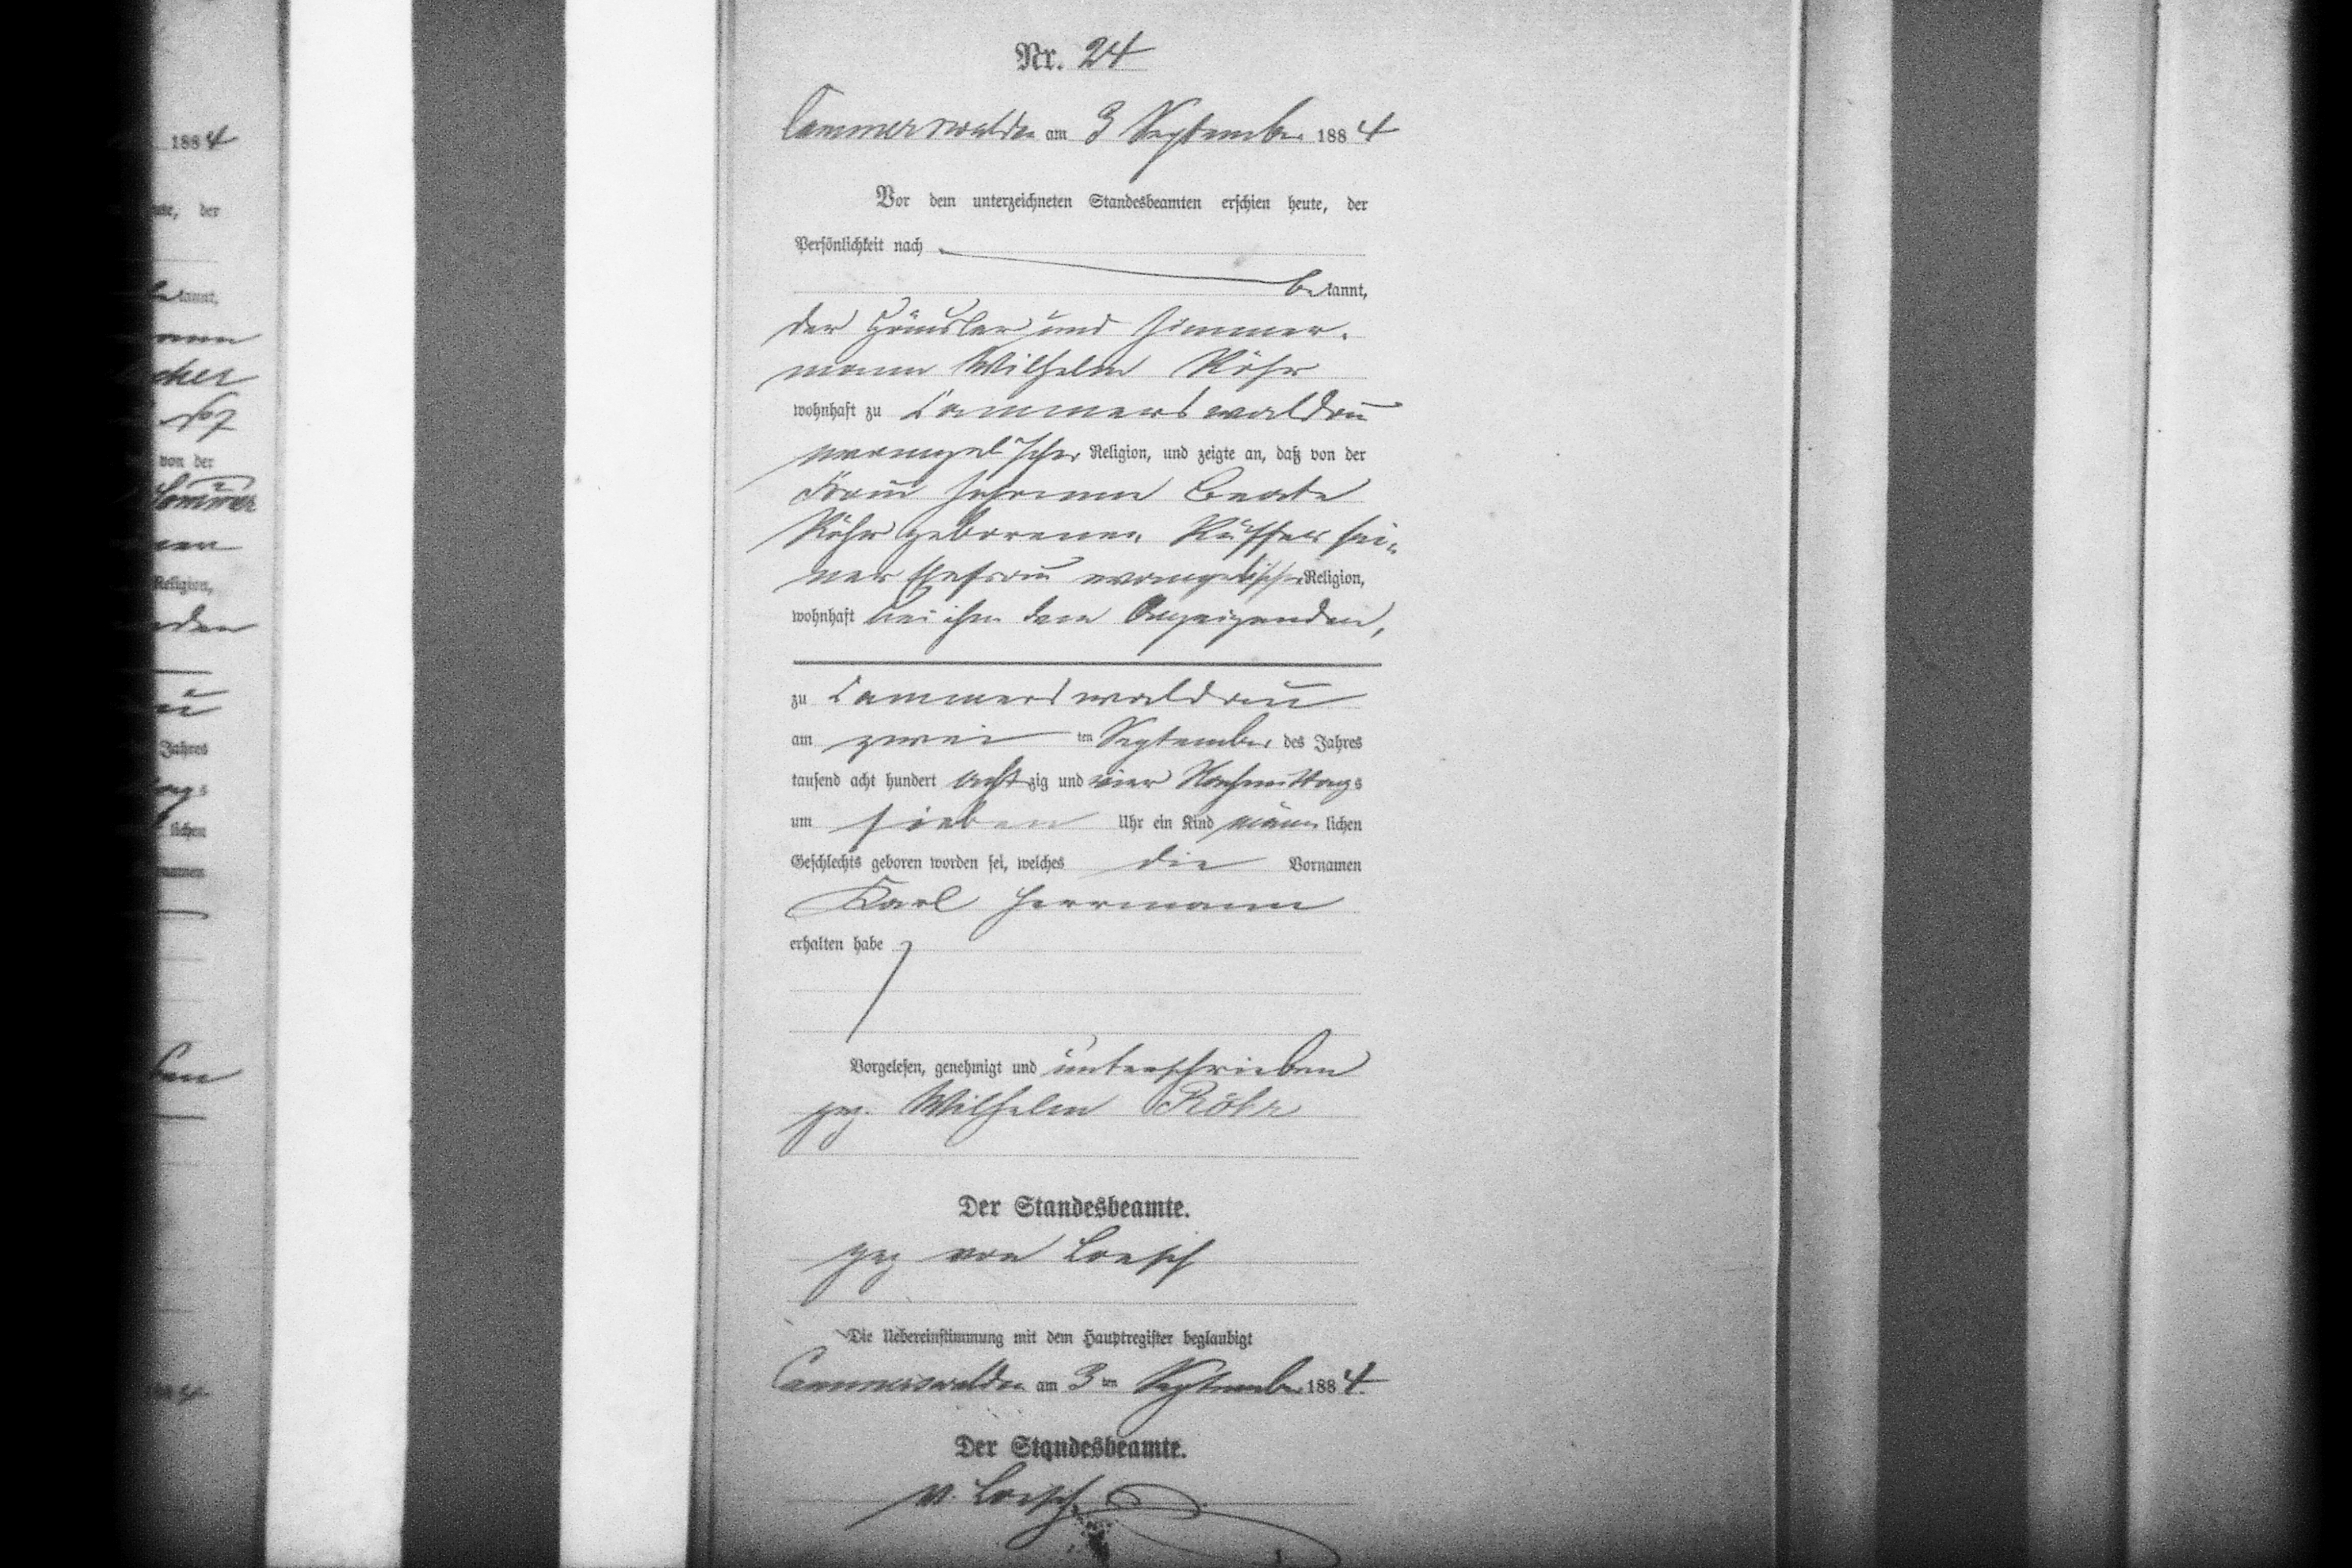 Nr. 24
Cammerswaldau am 3 September 1884
Vor dem unterzeichneten Standesbeamten erschien heute, der
Persönlichkeit nach
bekannt,
der Häusler und Zimmer-
mann Wilhelm Röhr
wohnhaft zu Cammerswaldau
evangelischer Religion, und zeigte an, daß von der
Frau Johanne Beate
Röhr geborenen Rüffer sei-
ner Ehefrau evangelischer Religion,
wohnhaft bei ihm dem Anzeigenden,
zu Cammerswaldau
am zwei ten September des Jahres
tausend acht hundert achtzig und vier Nachmittags
um sieben Uhr ein Kind männlichen
Geschlechts geboren worden sei, welches die Vornamen
Karl Herrmann
erhalten habe
Vorgelesen, genehmigt und unterschrieben
gez. Wilhelm Röhr
Der Standesbeamte.
gez von Loesch
Die Uebereinstimmung mit dem Hauptregister beglaubigt
Cammerswaldau am 3ten September 1884.
Der Standesbeamte.
v. Loesch
1884
der
kannt,
von der
Religion,
Jahres
lichen